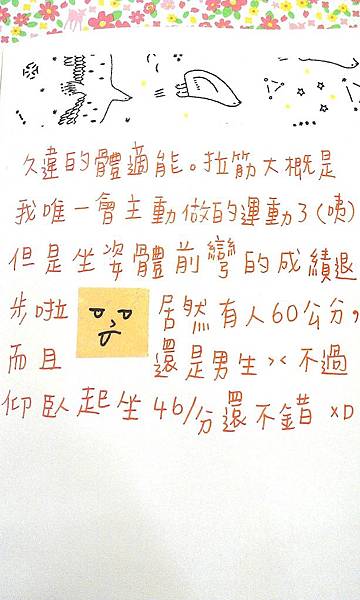 久違的體適能。拉筋大概是
我唯一會主動做的運動了(咦)
但是坐姿體前彎的成績退
步啦 居然有人60公分,
而且 還是男生>< 不過
仰臥起坐46/分還不錯 xD